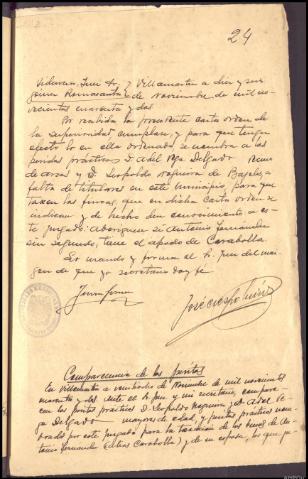 24
Juez Sr. } Villamartín a diez y
de Noviembre de mil no-
vecientos cuarenta y dos
Por recibida la presente carta orden de
la superioridad cumplase, y para que tenga
efecto lo en ella ordenado, se nombra a los
peritos prácticos D. Abel Vega Delgado
y D. Leopoldo Nogueira de
falta de titulares en este municipio, para que
tasen las fincas que en dicha carta orden se
indican y de hecho den conocimiento a es-
te juzgado: si Antonio Fernandez
sin segundo, tiene el apodo de Carabolla
Lo mando y firma el Sr. Juez del mar-
gen de que yo secretario doy fe
Comparecencia de los peritos
En Villamartín a veintiocho de Noviembre de mil novecientos
cuarenta y dos ante el Sr. Juez y mi secretario, compare-
cen los peritos prácticos D. Leopoldo Nogueira y D. Abel Ve-
ga Delgado mayores de edad, y peritos prácticos nom-
brados por este juzgado para la tasación de los bienes de An-
tonio Fernandez (alias Carabolla) y de su esposa, los que